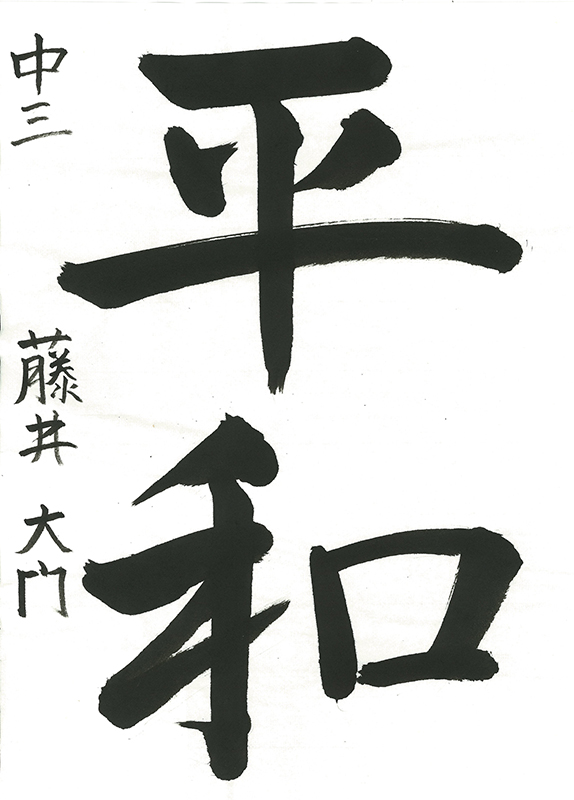 平和
中三 藤井 大門